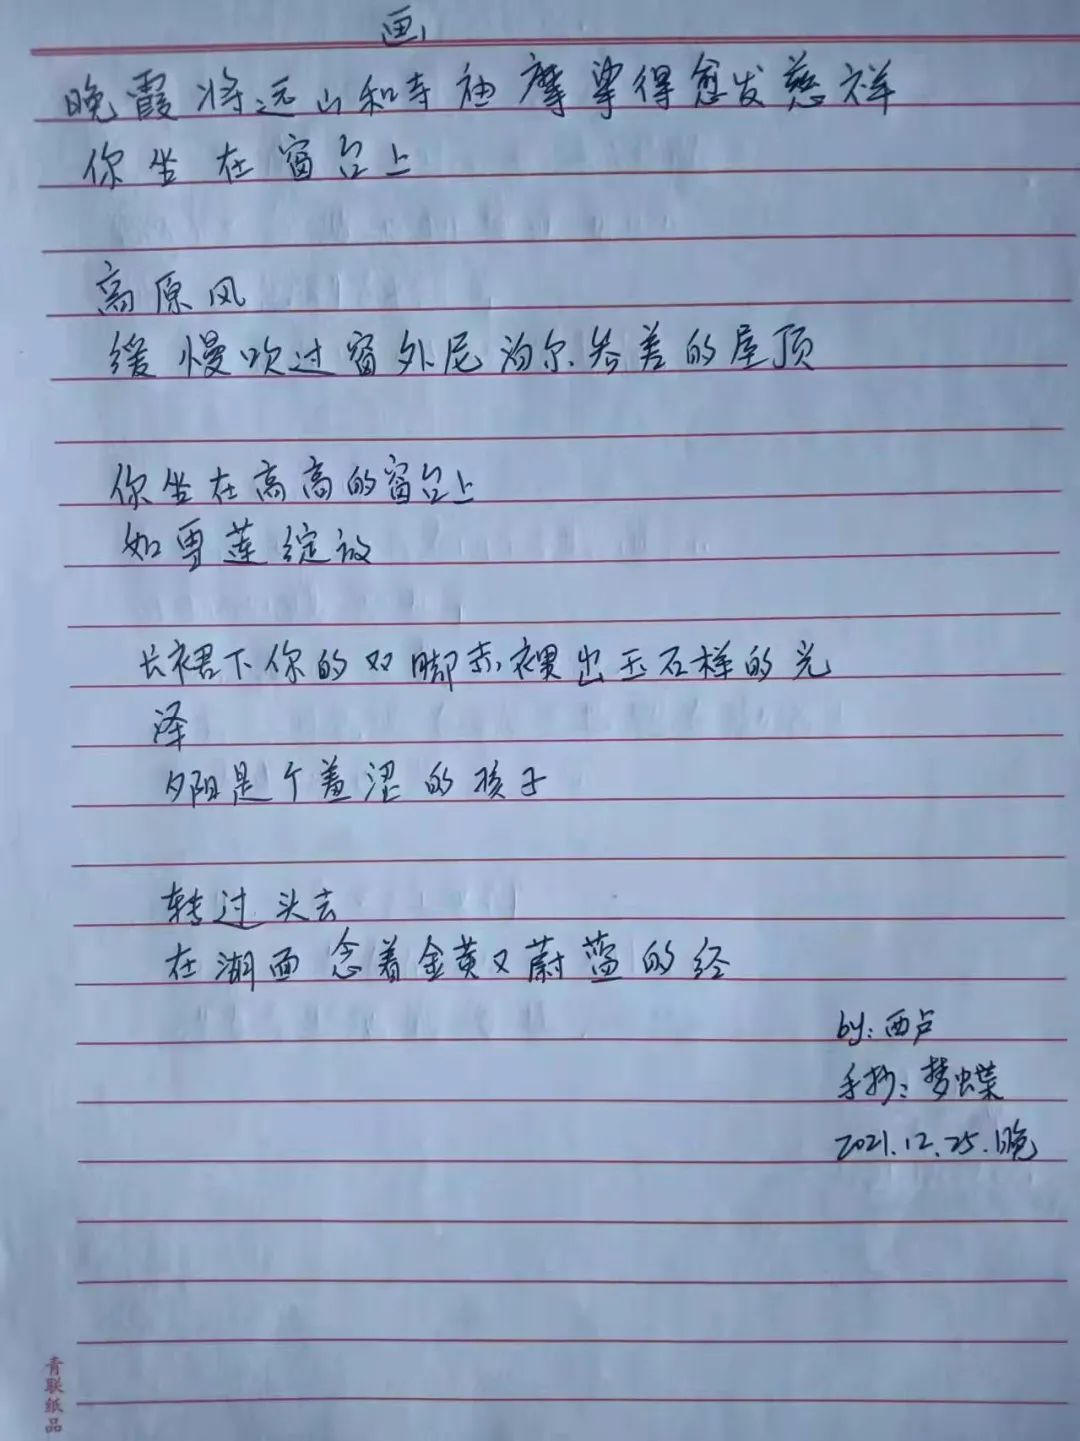 画
晚霞将远山和寺袖摩挲得愈发慈祥
你坐在窗台上
高原风
缓慢吹过窗外尼泊尔参差的屋顶
你坐在高高的窗台上
如雪莲绽放
长裙下你的双脚赤裸出玉石样的光
泽
夕阳是个羞涩的孩子
转过头去
在湖面念着金黄又蔚蓝的经
by:西卢
手抄:梦蝶
2021.12.25.晚
青联纸品